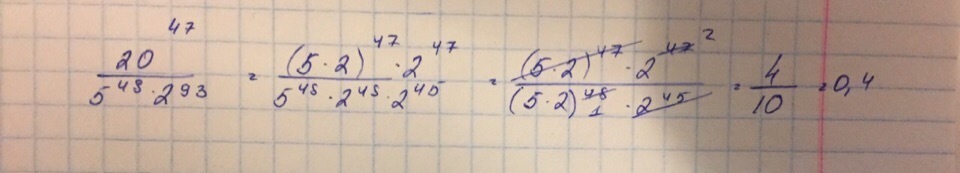 20^47 / (5^48 · 2^93) = ((5 · 2)^47 · 2^47) / (5^48 · 2^48 · 2^45) = ((5 · 2)^47 · 2^47 2) / ((5 · 2)^48 1 · 2^45) = 4/10 = 0,4